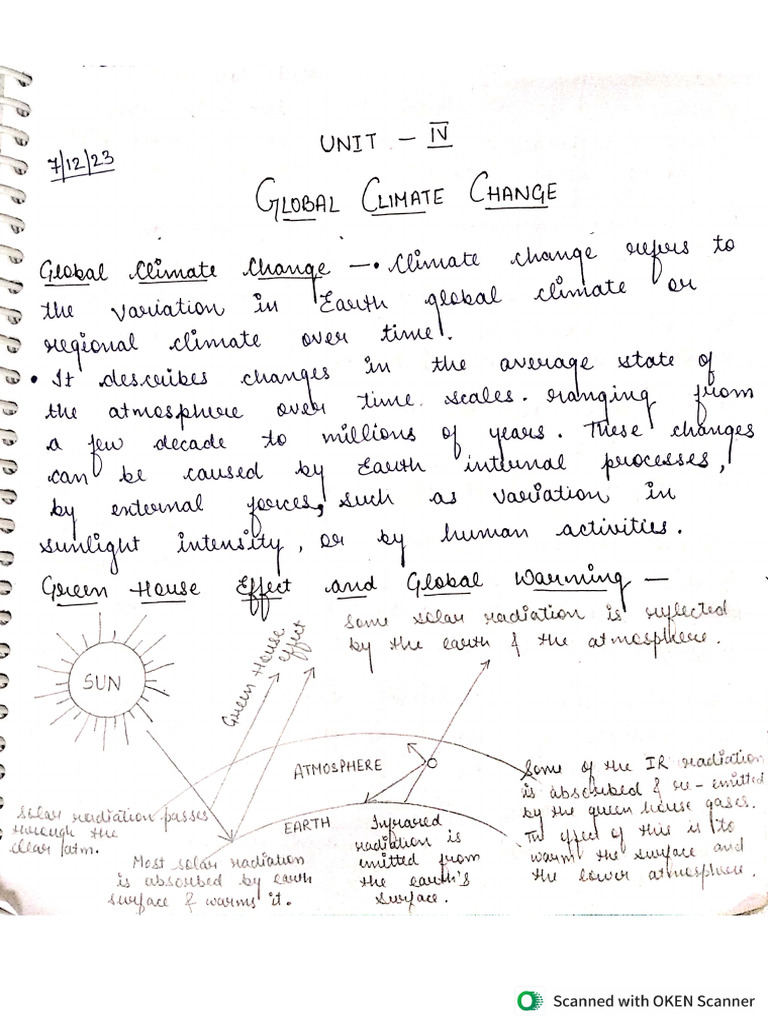 7/12/23
UNIT - IV
GLOBAL CLIMATE CHANGE
Global Climate Change —• Climate change refers to
the variation in Earth global climate or
regional climate over time.
• It describes changes in the average state of
the atmosphere over time scales. ranging from
a few decade to millions of years. These changes
can be caused by Earth internal processes,
by external forces, such as variation in
sunlight intensity, or by human activities.
Green House Effect and Global Warming —
Some solar radiation is reflected
by the earth & the atmosphere.
Green House
effect
SUN
ATMOSPHERE
Some of the IR radiation
is absorbed & re-emitted
by the green house gases.
The effect of this is to
warm the surface and
the lower atmosphere.
Solar radiation passes
through the
clear atm.
EARTH
Infrared
radiation is
emitted from
the earth's
surface.
Most solar radiation
is absorbed by earth
surface & warms it.
Scanned with OKEN Scanner